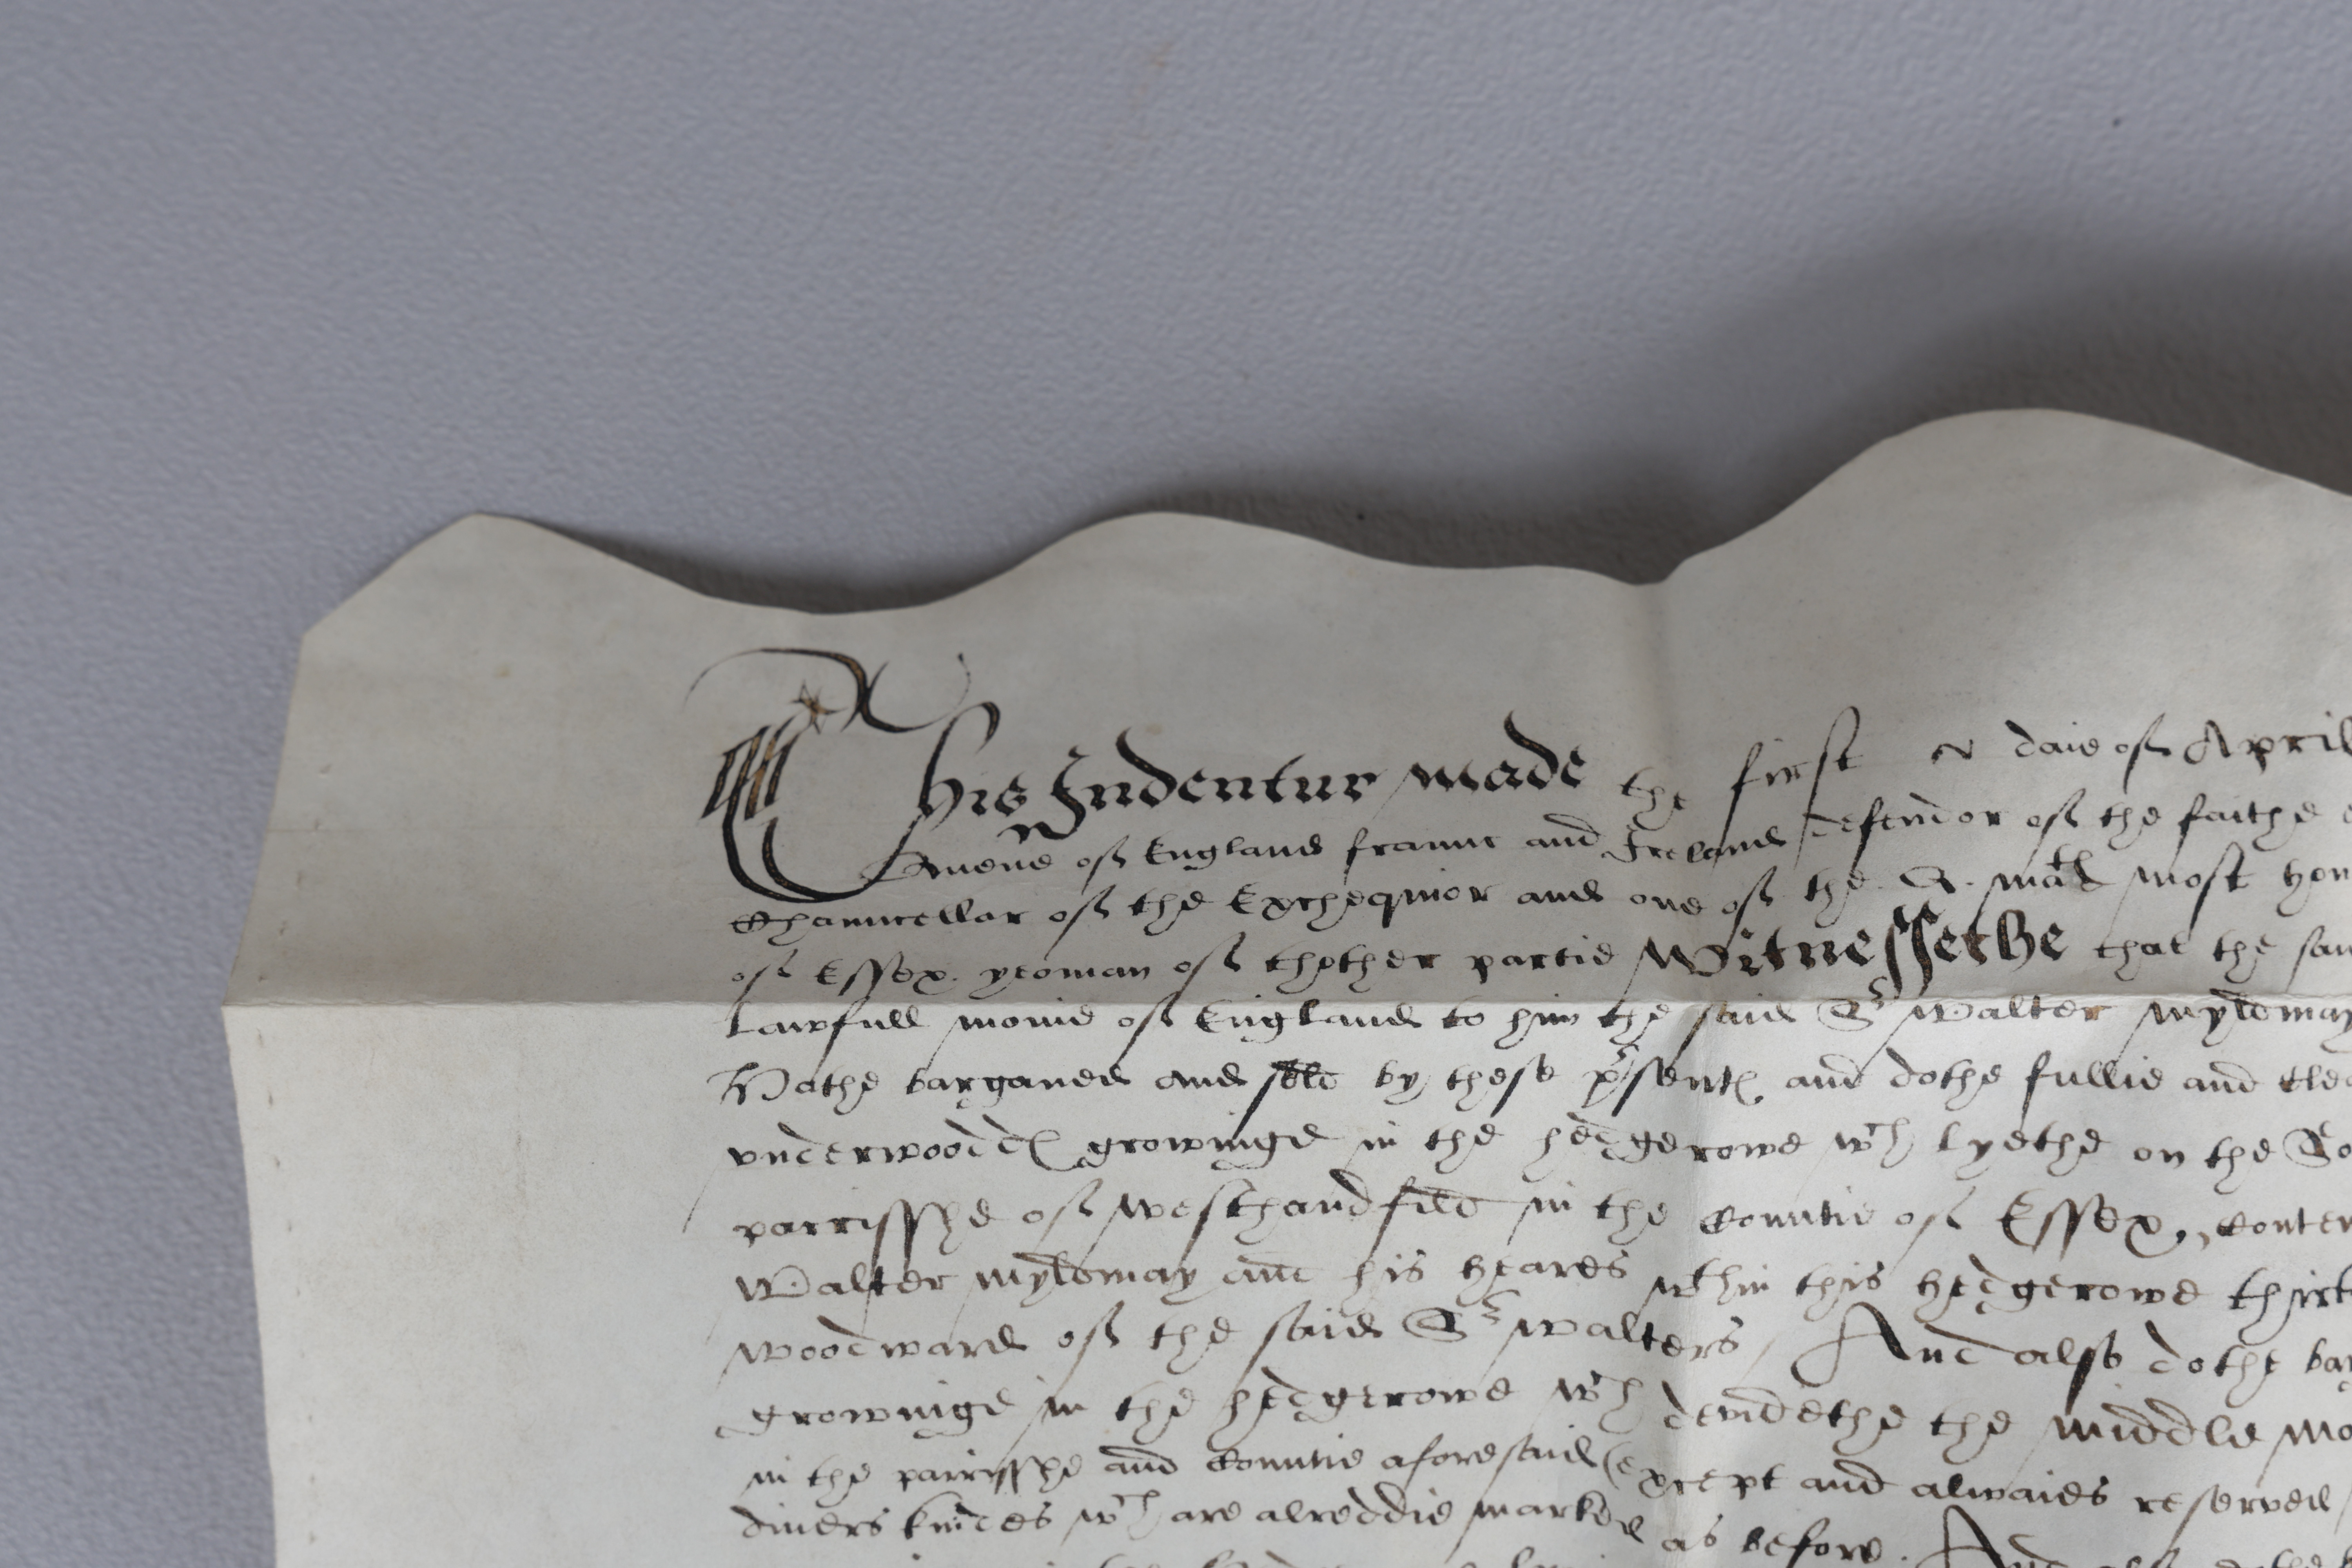 This Indentur made the first daie of April
Quene of England fraunc and Ireland defendor of the faithe
Chauncellor of the Exchequior and one of the Q. matẽ most hon
of Essex yeoman of thother partie Witnessethe that the sai
lawfull monie of England to him the said Sr Walter Myldmay
Hathe barganed and sold by these prsentẽ and dothe fullie and clea
underwoodẽ growinge in the hedgerowe wch lyethe on the So
parrisshe of westhandfild in the Countie of Essex, Conter
Walter Myldmay and his heares wthin this hedgerowe thirt
woodward of the said Sr Walters / And also dothe bar
growinge in the hedgerowe wch devidethe the middle mo
in the parrisshe and Countie aforesaid (except and alwaies reserved
divers kindes wch are alreddie marked as before. And